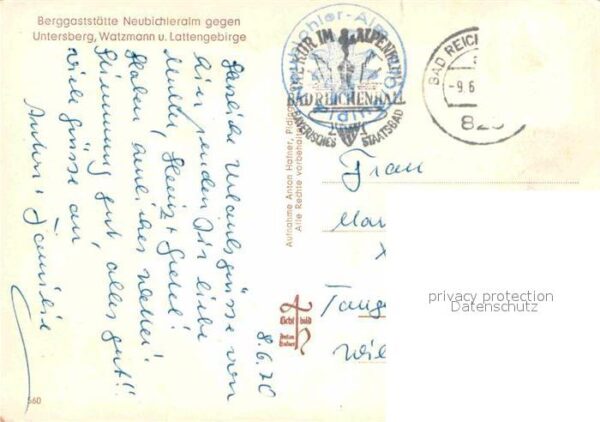 Berggaststätte Neubichleralm gegen
Untersberg, Watzmann u. Lattengebirge
Herzliche Urlaubsgrüsse von
hier senden Dir liebe
Mutter, Heinz + Gretel!
Haben herrliches Wetter!
Stimmung gut, alles gut!!
viele Grüsse an
Anton + Familie
8.6.70
Aufnahme Anton Hafner, Piding
Alle Rechte vorbehalten
Licht bild
Anton
Hafner
560
KUR IM ALPENKLIMA
BAD REICHENHALL
BAYERISCHES STAATSBAD
Neubichler-Alm
Piding
BAD REICH
-9.6
823
Frau
Mar
Tange
Wil
privacy protection
Datenschutz